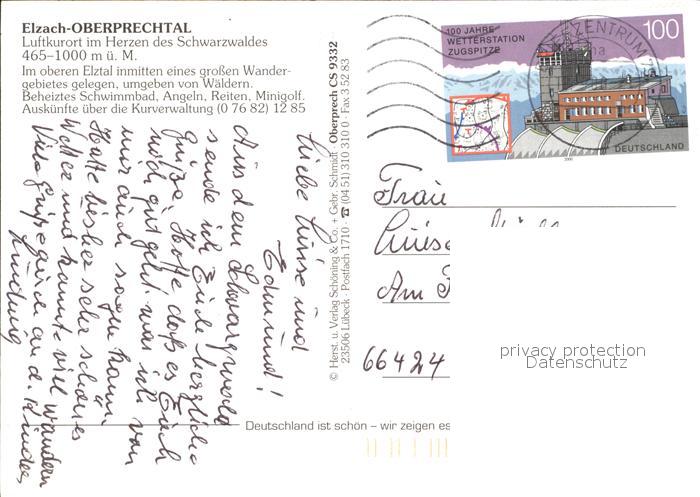 Elzach-OBERPRECHTAL
Luftkurort im Herzen des Schwarzwaldes
465–1000 m ü. M.
Im oberen Elztal inmitten eines großen Wander-
gebietes gelegen, umgeben von Wäldern.
Beheiztes Schwimmbad, Angeln, Reiten, Minigolf.
Auskünfte über die Kurverwaltung (0 76 82) 12 85
Liebe Luise und
Edmund!
Aus dem Schwarzwald
sende ich Euch herzliche
Grüße. Hoffe daß es Euch
noch gut geht was ich von
mir auch sagen kann.
Hatte bisher sehr schönes
Wetter und konnte viel wandern
Viele Grüße auch an d. Kinder,
Ludwig
© Herst. u. Verlag Schöning & Co. + Gebr. Schmidt · Oberprech CS 9332
23506 Lübeck · Postfach 1710 · ☎ (04 51) 310 310 0 · Fax 3 52 83
100 JAHRE
WETTERSTATION
ZUGSPITZE
100
DEUTSCHLAND
2000
ZENTRUM
Frau
Luise
Am
66424
privacy protection
Datenschutz
Deutschland ist schön – wir zeigen es